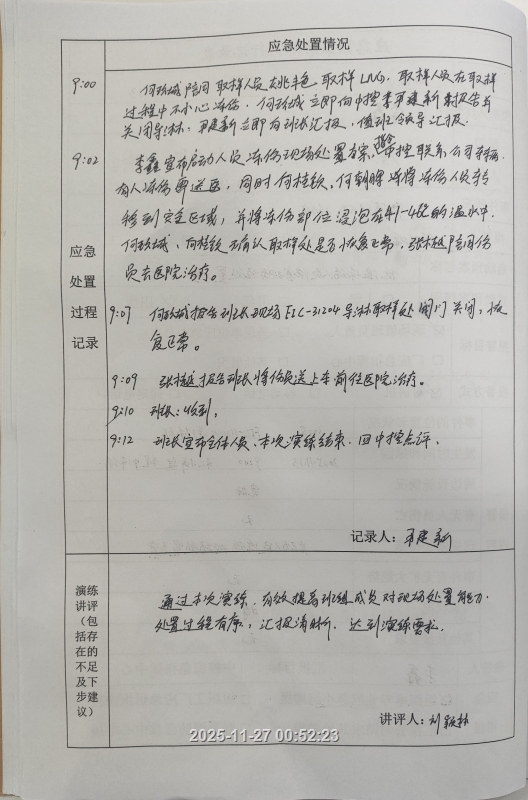 应急处置情况
应急
处置
过程
记录
9:00 何玖城陪同取样人员姚丰色取样LNG,取样人员在取样
过程中不小心冻伤,何玖城立即向中控李建新报告并
关闭导淋;建新立即向班长汇报,值班领导汇报。
9:02 李鑫宣布启动人员冻伤现场处置方案,指令中控联系公司车辆
有人冻伤需送医,同时何桂钦、何朝晖将冻伤人员转
移到安全区域,并将冻伤部位浸泡在41-42的温水中.
何玖城、何桂钦确认取样处是否恢复正常,张越陪同伤
员去医院治疗。
9:07 何玖城报告班长现场FIC-31204导淋取样处阀门关闭,恢
复正常。
9:09 张越报告班长将伤员送上车前往医院治疗。
9:10 班长:收到,
9:12 班长宣布全体人员,本次演练结束.回中控点评.
记录人:建新
演练
讲评
(包
括存
在的
不足
及下
步建
议)
通过本次演练,有效提高班组成员对现场处置能力.
处置过程有序,汇报清晰.达到演练要求.
讲评人:刘
2025-11-27 00:52:23